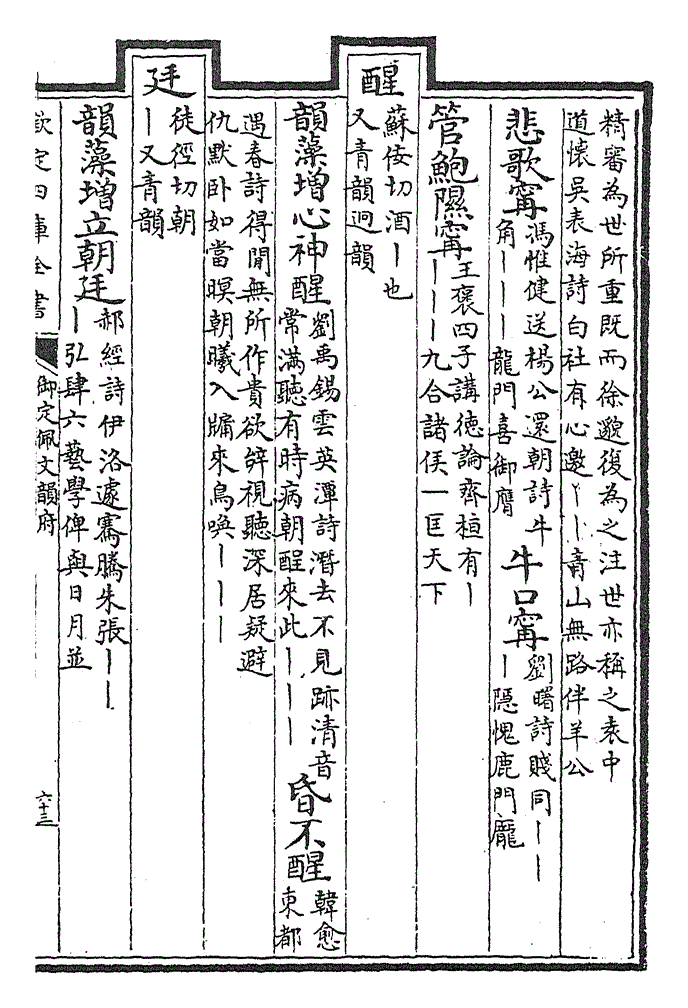 精審為世所重既而徐邈復為之注世亦稱之袁中
道懷吳表海詩白社有心邀丨丨青山無路伴羊公
悲歌甯馮惟健送楊公還朝詩牛角丨丨丨龍門喜御膺
牛口甯劉曙詩賤同丨丨丨隱愧鹿門龐
管鮑隰甯王褒四子講德論齊桓有丨丨丨丨九合諸侯一匡天下
醒
蘇佞切酒丨也
又青韻迥韻
韻藻增心神醒劉禹錫雲英潭詩潛去不見跡清音常滿聽有時病朝酲來此丨丨丨
昏不醒韓愈東都
遇春詩得閒無所作貴欲辝視聽深居疑避
仇默卧如當暝朝曦入牖來鳥喚丨丨丨
廷
徒徑切朝
丨又青韻
韻藻增立朝廷郝經詩伊洛遽騫騰朱張丨丨丨弘肆六藝學俾與日月並
欽定四庫全書
御定佩文韻府
六十三